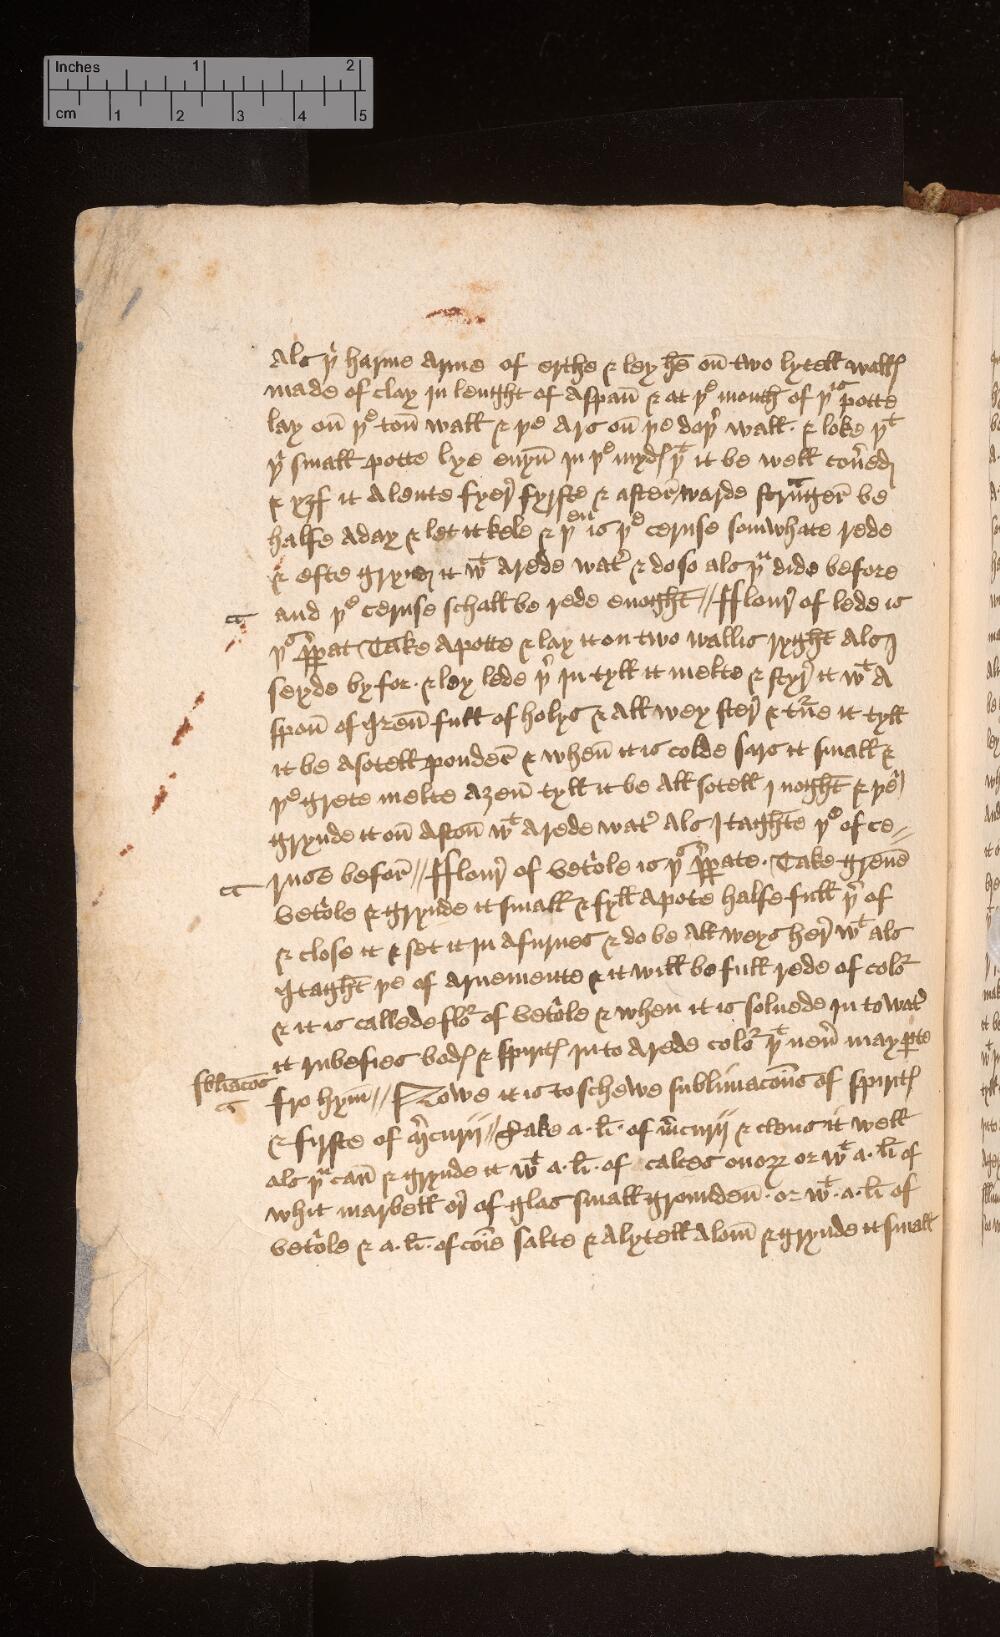 Inches 1 2
cm 1 2 3 4 5
als þ harme arme of erthe & ley hē oū two lytell wallꝭ
made of clay in lenght of a spaū & at þe mouth of þis potte
lay oū þe toū wall & þe ars oū þe doþ wall · & loke þt
þi small potte lye euyū in þe mydꝭ þt it be well couered
& yf it a lente fyer fyrste & afterwarde stranger be
halfe a day & let it kele & þen is þe ceruse somwhate rede
& efte grynd it wt a rede wat & do so als þu dide before
and þe ceruse schall be rede enoght // fflour of lede is
þus ppat Take a potte & lay it on two wallis ryght als
seyde by for · & ley lede þ in tyll it melte & styr it wt a
spoū of Ireū full of holys & all wey ster & tne it tyll
it be a sotell pouder & wheū it is colde sars it small &
þe grete melte aȝeū tyll it be all sotell I noght & þe
grynde it oū a stoū wt a rede wat als I taghte þe of ce //
ruse befor // fflour of vetole is þus ppate · Take grene
vetole & grynde it small & fyll a pote halfe full þ of
& close it & set it in a furnes & do be all weys her wt als
I taght þe of arnemente & it will be full rede of color
& it is callede flor of vetole & when it is soluede in to wat
it rubefies bodꝭ & spiritꝭ in to a rede color þt neu may pte
sblīacōs
fro hym // Nowe it is to schewe sublimacoūs of spiritꝭ
& fyrste of mcurij // Take a · li · of mcurij & clens it well
als þu can & grynde it wt a · li · of calces ouorꝝ or wt a · li of
whit marbell or of glas small groundeū · or wt · a · li of
vetole & a · li · of coīe salte & a lytell alom & grynde it small